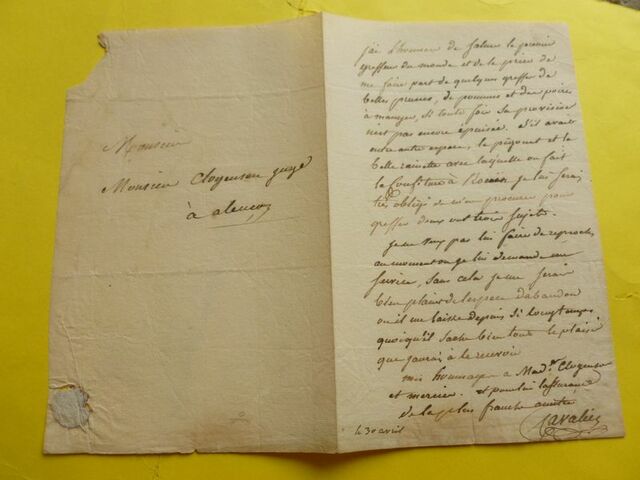 Monsieur
Monsieur Clogenson juge
à alençon
j'ai l'honneur de saluer le premier
greffeur du monde et de le prier de
me faire part de quelques greffes de
belles prunes, de pommes et de poires
à manger, si toute fois sa provision
n'est pas encore épuisée. S'il avait
entre autre espece, le pigeonet et la
belle rainette avec laquelle on fait
la confiture à Rouen je lui serai
très obligé de m'en procurer pour
greffer deux ou trois sujets.
je ne veux pas lui faire de reproches
au moment ou je lui demande un
service, sans cela je me serai
bien plaint de l'espece d'abandon
ou il me laisse depuis si longtemps
quoiqu'il sache bien tout le plaisir
que j'aurai à le recevoir
mes hommages a Mad.e Clogenson
et mercier. et pour lui l'assurance
de la plus franche amitié
Cavalier
le 30 avril